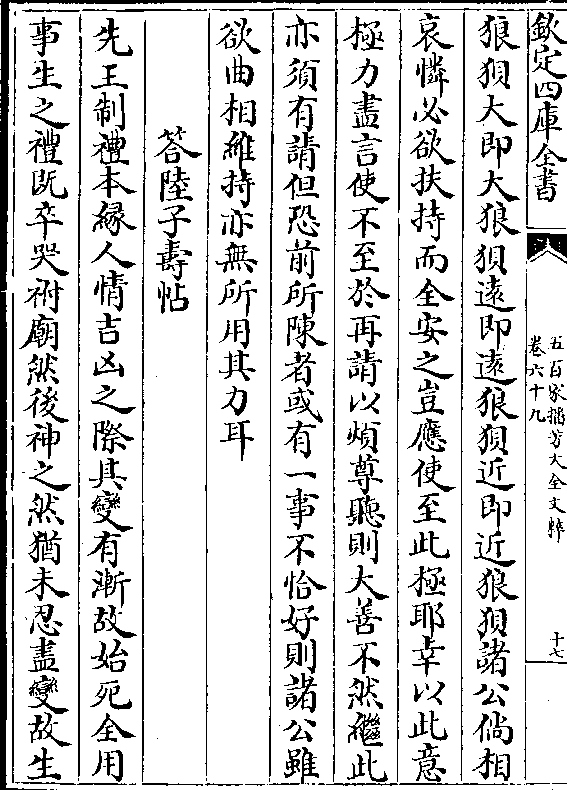 欽定四庫全書
五百家播芳大全文粹
卷六十九
十七
狼狽大即大狼狽遠即遠狼狽近即近狼狽諸公倘相
哀憐必欲扶持而全安之豈應使至此極耶幸以此意
極力盡言使不至於再請以煩尊聽則大善不然繼此
亦須有請但恐前所陳者或有一事不恰好則諸公雖
欲曲相維持亦無所用其力耳
答陸子壽帖
先王制禮本緣人情吉凶之際其變有漸故始死全用
事生之禮既卒哭祔廟然後神之然猶未忍盡變故生